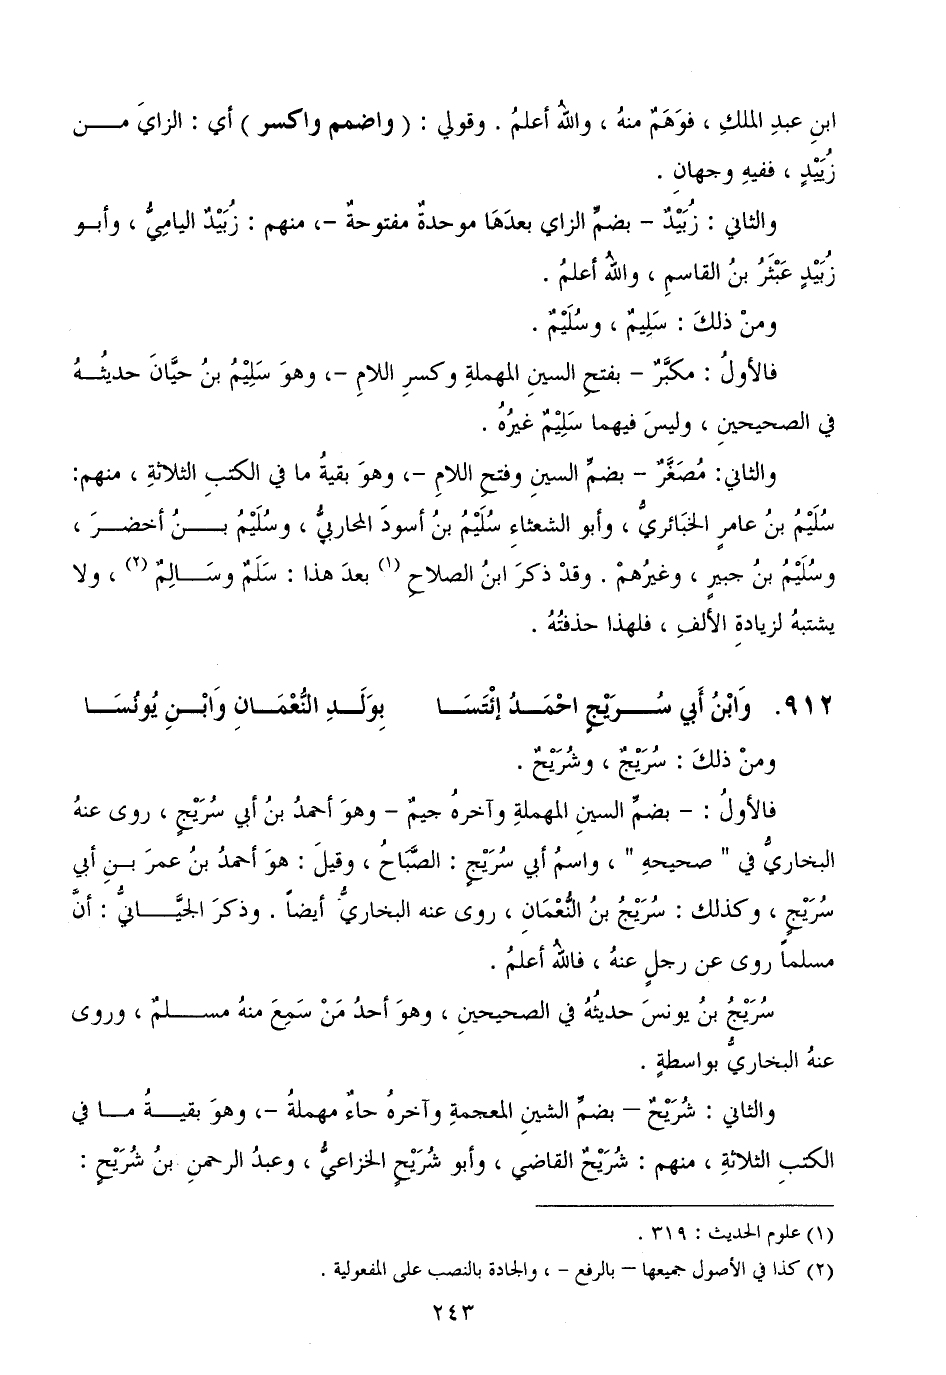 ابنِ عبدِ الملكِ ، فوَهَمٌ منهُ ، واللهُ أعلمُ . وقولي : ( واضمم واكسر ) أي : الزايَ مـــن
زُبَيْدٍ ، ففيهِ وجهانِ .
والثاني : زُبَيْدٌ – بضمِّ الزاي بعدَهَا موحدةٌ مفتوحةٌ –، منهم : زُبَيْدٌ الياميُّ ، وأبـو
زُبَيْدٍ عَبْثَرُ بنُ القاسمِ ، واللهُ أعلمُ .
ومنْ ذلكَ : سَلِيمٌ ، وسُلَيْمٌ .
فالأولُ : مكبَّرٌ – بفتحِ السينِ المهملةِ وكسرِ اللامِ –، وهوَ سَلِيْمُ بنُ حيَّانَ حديثُـهُ
في الصحيحينِ ، وليسَ فيهما سَلِيْمٌ غيرُهُ .
والثاني: مُصَغَّرٌ – بضمِّ السينِ وفتحِ اللامِ –، وهوَ بقيةُ ما في الكتبِ الثلاثةِ ، منهم:
سُلَيْمُ بنُ عامرٍ الخَبَائريُّ ، وأبو الشعثاءِ سُلَيْمُ بنُ أسودَ المحاربيُّ ، وسُلَيْمُ بـــنُ أخضـرَ ،
وسُلَيْمُ بنُ جبيرٍ ، وغيرُهمْ . وقدْ ذكرَ ابنُ الصلاحِ (١) بعدَ هذا : سَلَمٌ وسَـــالِمٌ (٢) ، ولا
يشتبهُ لزيادةِ الألفِ ، فلهذا حذفتُهُ .
٩١٢. وَابْنُ أَبي سُـــرَيْجٍ احْمَــدُ إئْتَسَــا بِوَلَــدِ النُّعْمَــانِ وَابْــنِ يُونُسَــا
ومنْ ذلكَ : سُرَيْجٌ ، وشُرَيْحٌ .
فالأولُ : – بضمِّ السينِ المهملةِ وآخرهُ جيمٌ – وهوَ أحمدُ بنُ أبي سُرَيْجٍ ، روى عنهُ
البخاريُّ في " صحيحهِ " ، واسمُ أبي سُرَيْجٍ : الصَّبَاحُ ، وقيلَ : هوَ أحمدُ بنُ عمرَ بـنِ أبي
سُرَيْجٍ ، وكذلك : سُرَيْجُ بنُ النُّعْمَانِ ، روى عنه البخاريُّ أيضاً . وذكرَ الجَيَّـــانيُّ : أنَّ
مسلماً روى عن رجلٍ عنهُ ، فاللهُ أعلمُ .
سُرَيْجُ بنُ يونسَ حديثُهُ في الصحيحينِ ، وهوَ أحدُ مَنْ سَمِعَ منهُ مســـلمٌ ، وروى
عنهُ البخاريُّ بواسطةٍ .
والثاني : شُرَيْحٌ – بضمِّ الشينِ المعجمةِ وآخرهُ حاءٌ مهملةٌ –، وهوَ بقيـــةُ مــا في
الكتبِ الثلاثةِ ، منهم : شُرَيْحٌ القاضي ، وأبو شُرَيْحٍ الخزاعيُّ ، وعبدُ الرحمنِ بنُ شُرَيْحٍ :
(١) علوم الحديث : ٣١٩ .
(٢) كذا في الأصول جميعها – بالرفع – ، والجادة بالنصب على المفعولية .
٢٤٣